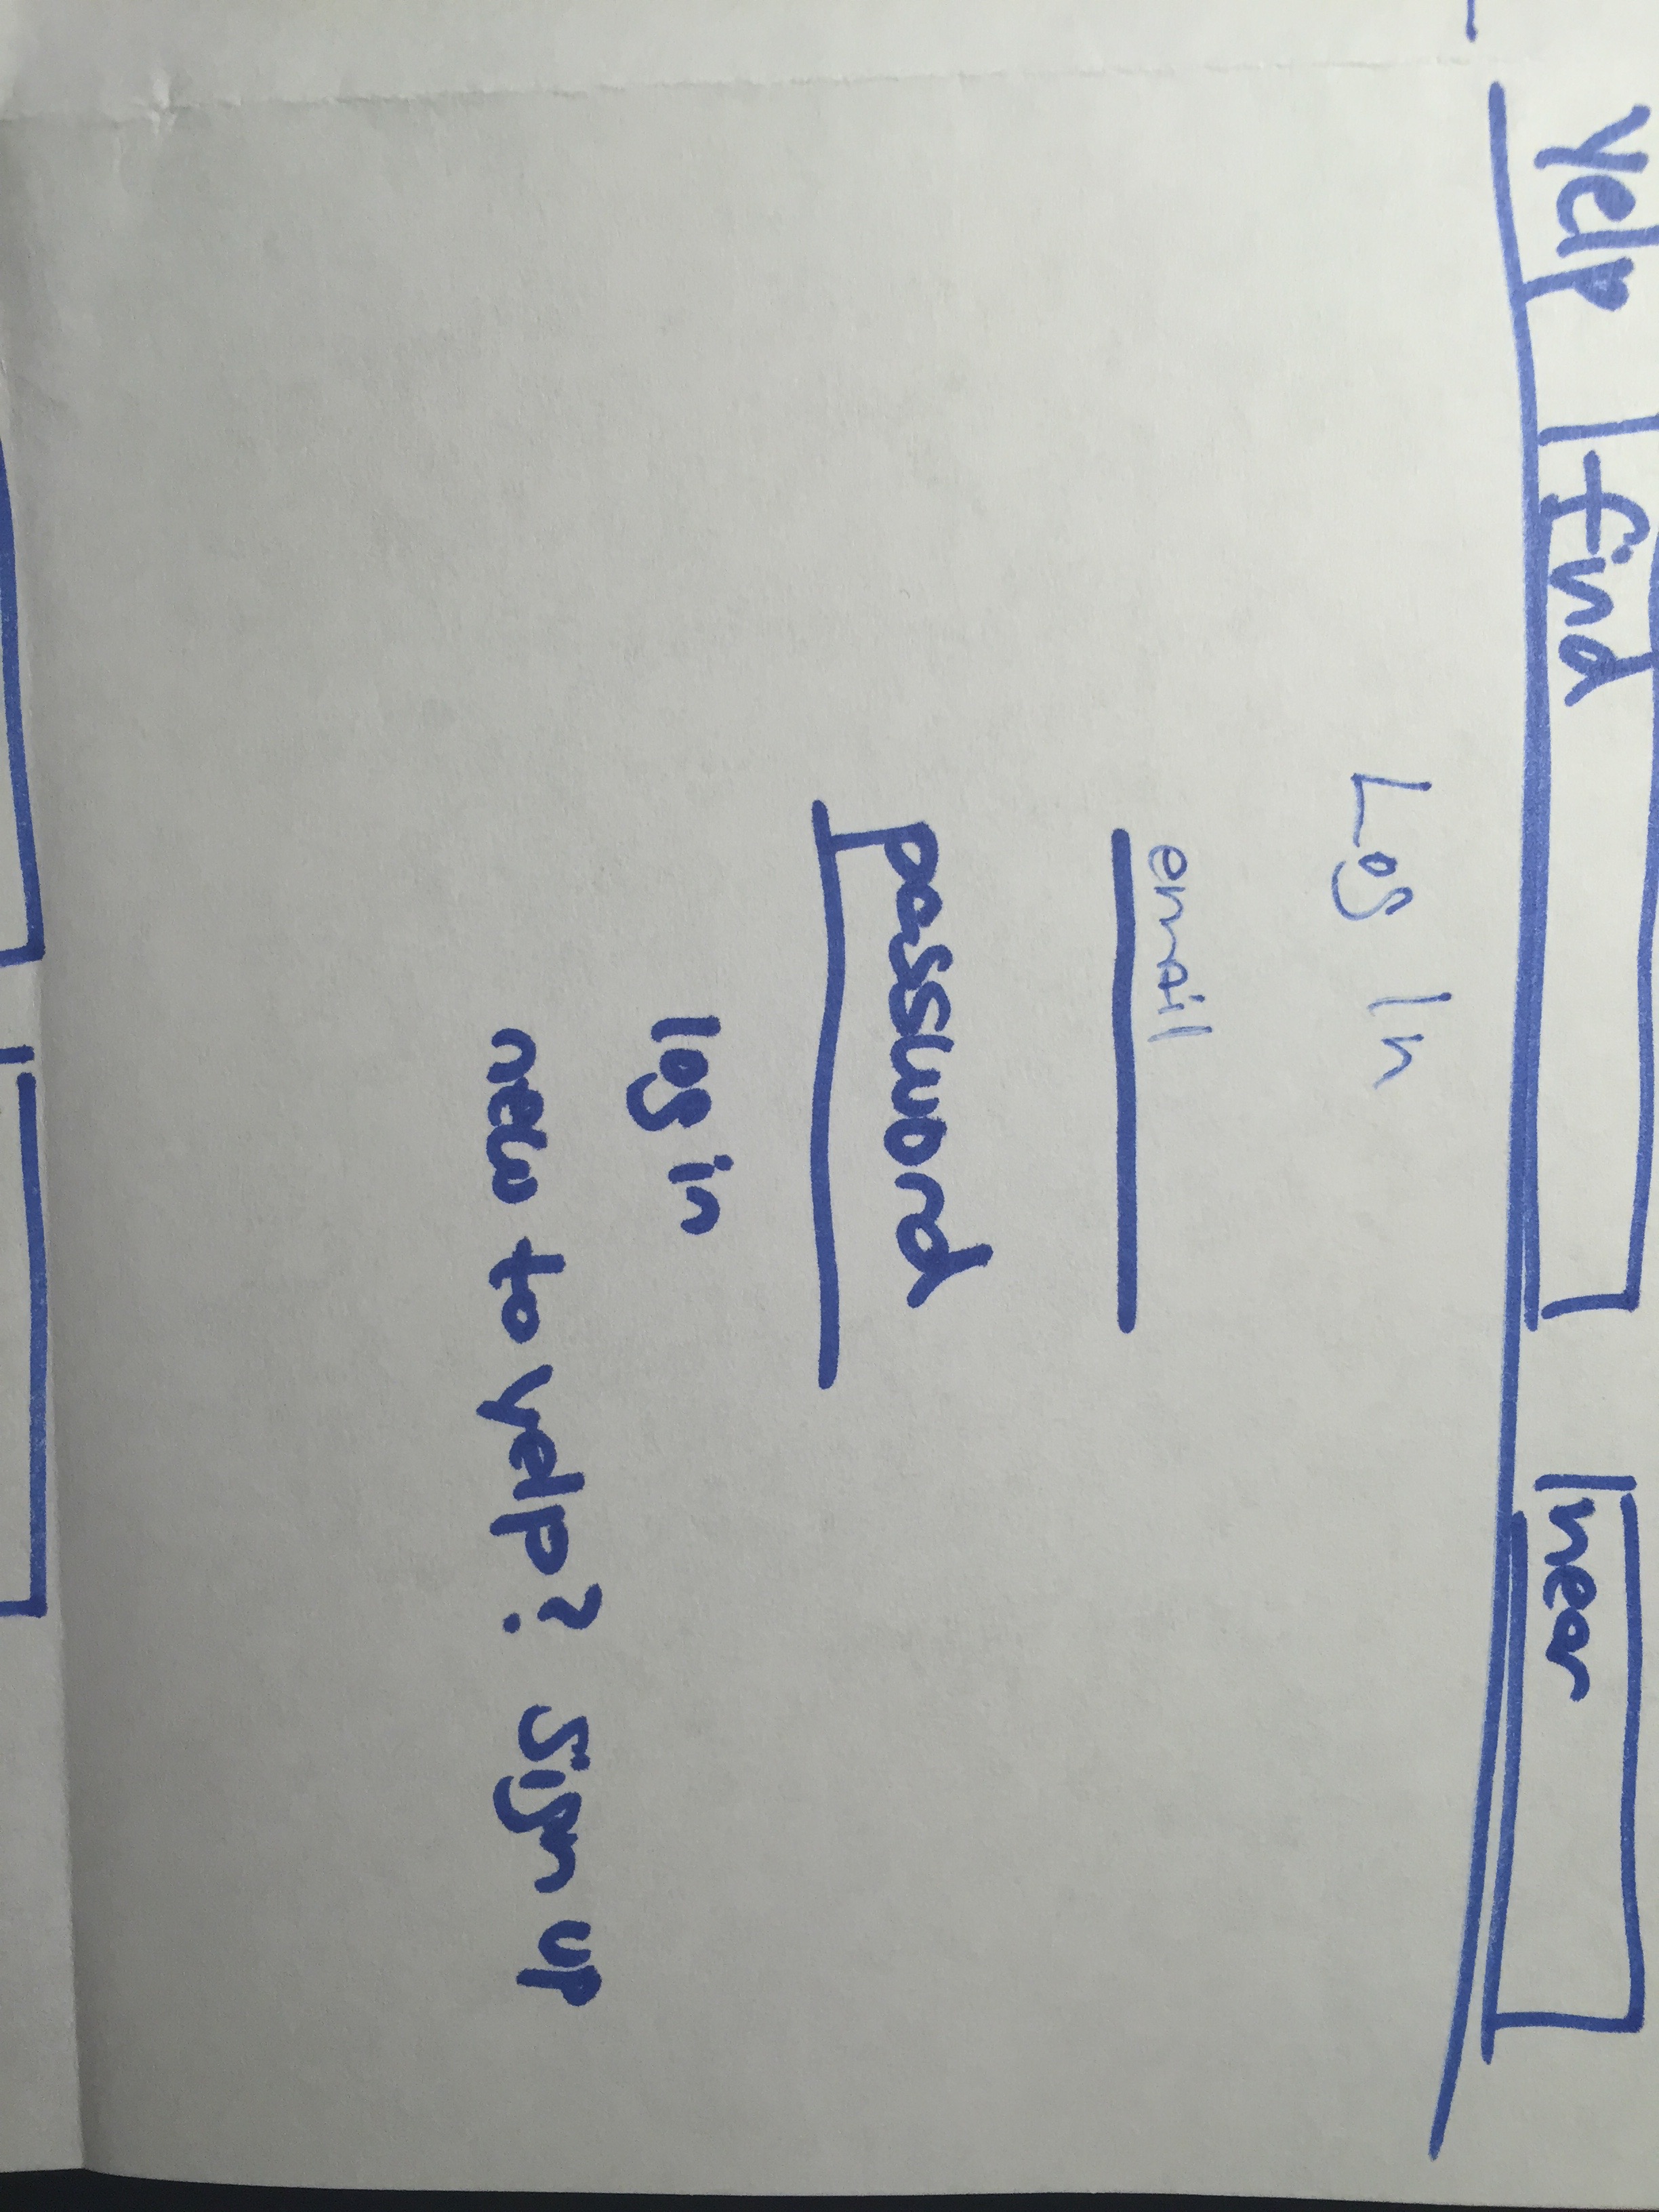 yelp find near
Log In
email
password
log in
new to yelp? Sign up